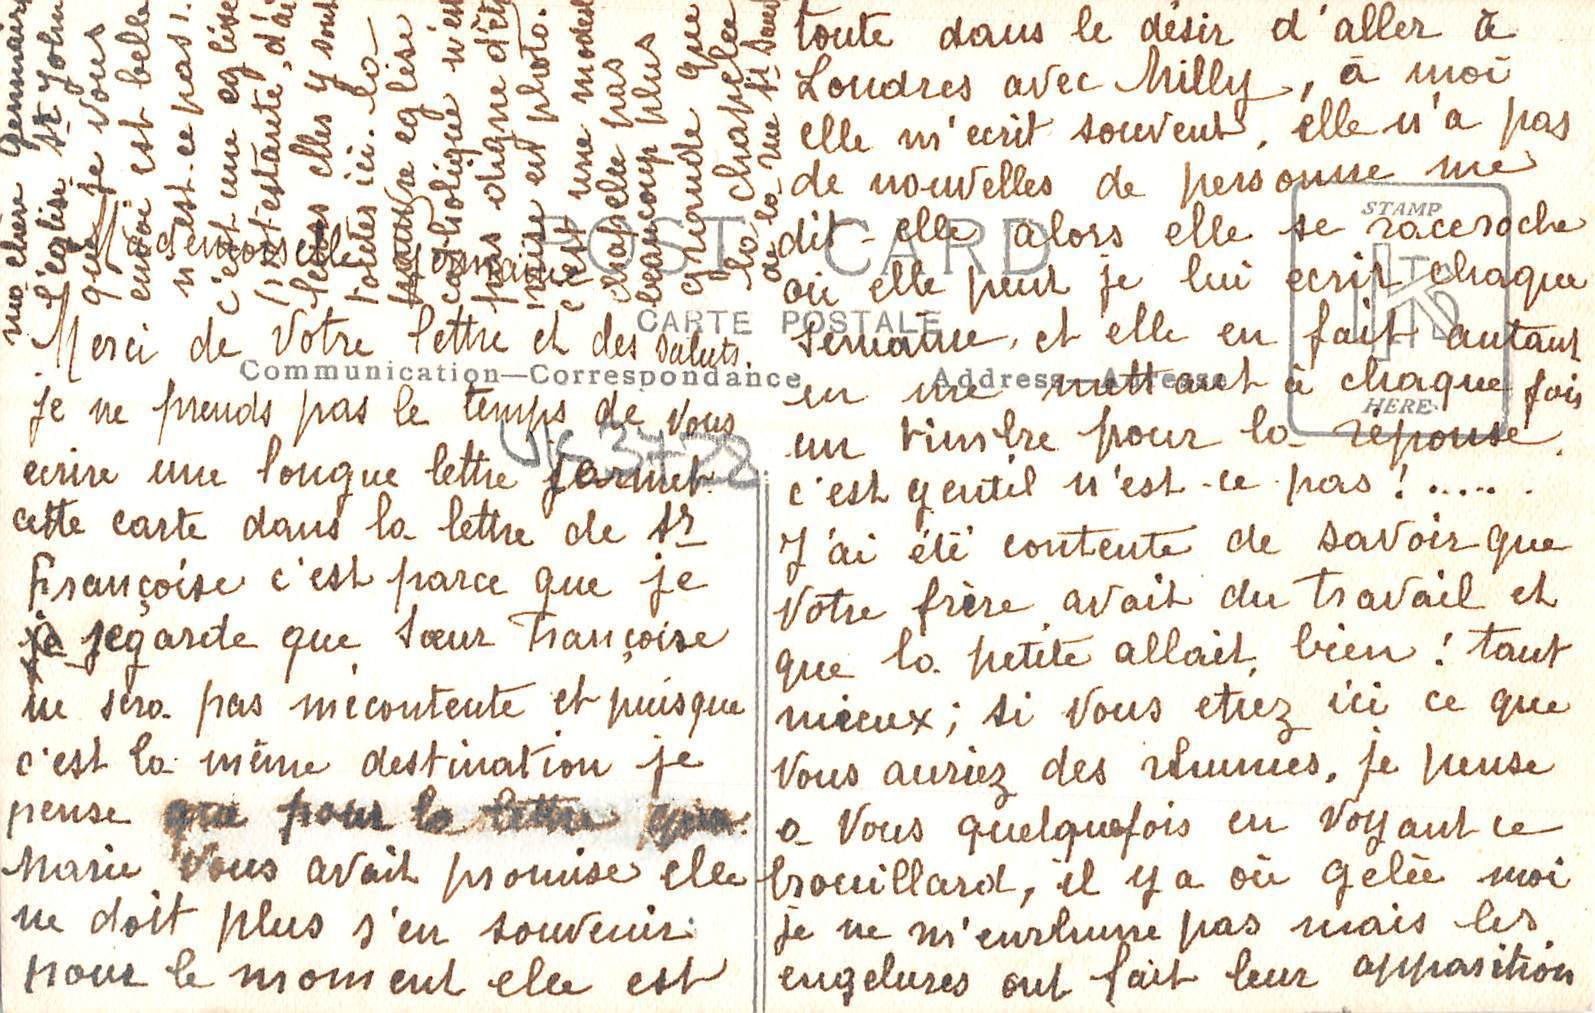 Mademoiselle Germaine
Merci de votre lettre et des saluts.
je ne prends pas le temps de vous
ecrire une longue lettre
cette carte dans la lettre de Sr
Françoise c'est parce que je
regarde que Sœur Françoise
ne sera pas mecontente et puisque
c'est la même destination je
pense que pour la lettre que
Marie vous avait promise elle
ne doit plus s'en souvenir
pour le moment elle est
toute dans le désir d'aller à
Londres avec Milly, à moi
elle m'ecrit souvent, elle n'a pas
de nouvelles de personne me
dit-elle alors elle se raccroche
où elle peut je lui ecrit chaque
semaine, et elle en fait autant
en me mettant à chaque fois
un timbre pour la réponse.
c'est gentil n'est-ce pas! .....
J'ai été contente de savoir que
votre frère avait du travail et
que la petite allait bien! tant
mieux; si vous etiez ici ce que
vous auriez des rhumes. je pense
a vous quelquefois en voyant ce
brouillard, il y a où gelée moi
je ne m'enrhume pas mais les
engelures ont fait leur apparition
ma chere Germaine
l'eglise St John
que je vous
envoi est belle
n'est-ce pas!
c'est une eglise
protestante, d'ai
lleurs elles y sont
toutes ici. la
pauvre eglise
catholique n'est
pas digne d'être
mise en photo.
c'est une modes
chapelle pas
beaucoup plus
grande que
la chapelle
de la rue
POST CARD
CARTE POSTALE
Communication—Correspondance
Address—Adresse
STAMP
HERE
K LTD
UK 3722